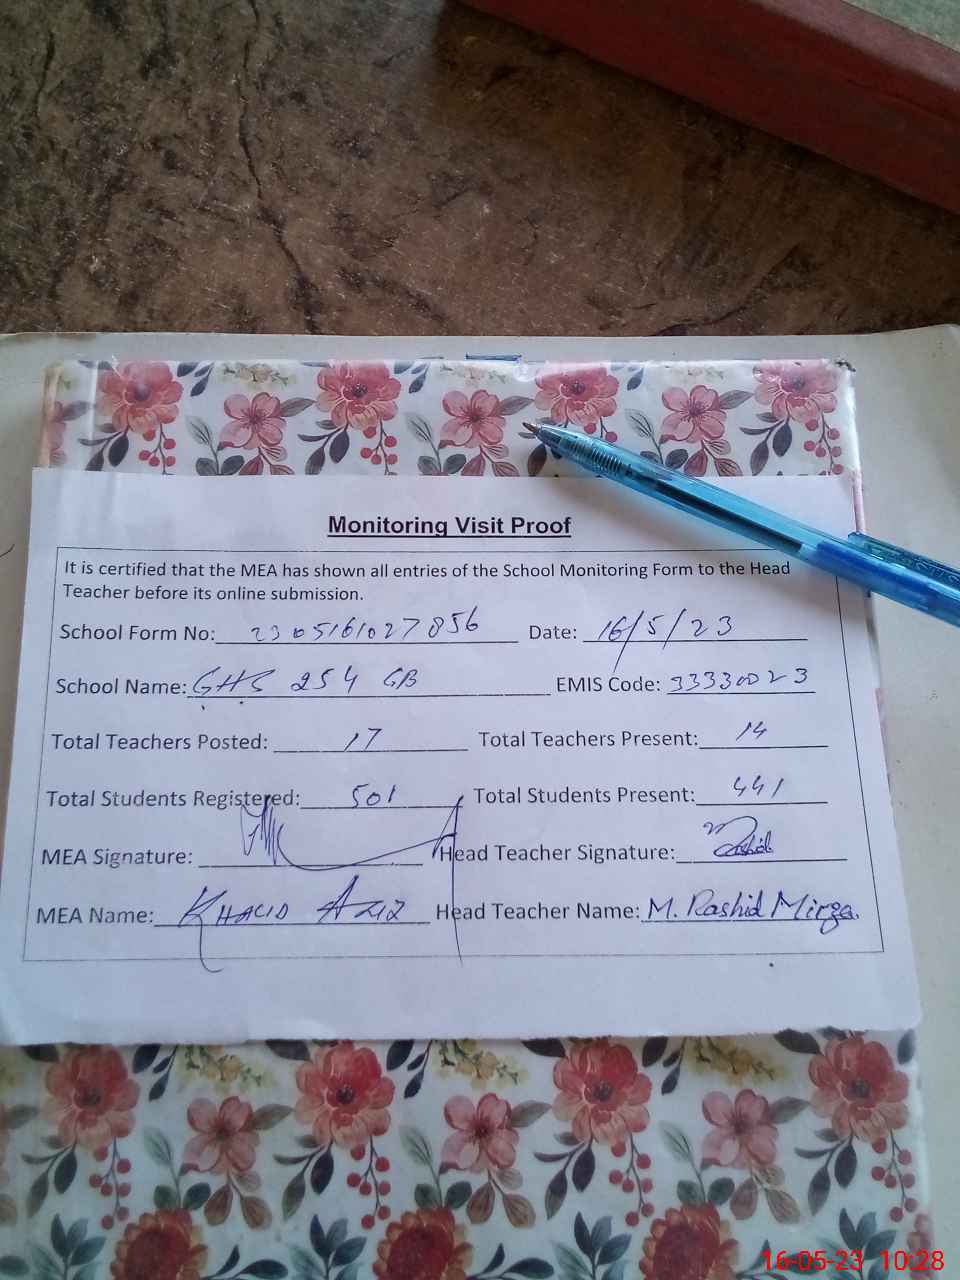 Monitoring Visit Proof
It is certified that the MEA has shown all entries of the School Monitoring Form to the Head
Teacher before its online submission.
School Form No: 2305161027856 Date: 16/5/23
School Name: GHS 254 GB EMIS Code: 33330023
Total Teachers Posted: 17 Total Teachers Present: 14
Total Students Registered: 501 Total Students Present: 441
MEA Signature: Head Teacher Signature: Rashid
MEA Name: KHALID AZIZ Head Teacher Name: M. Rashid Mirza.
16-05-23 10:28